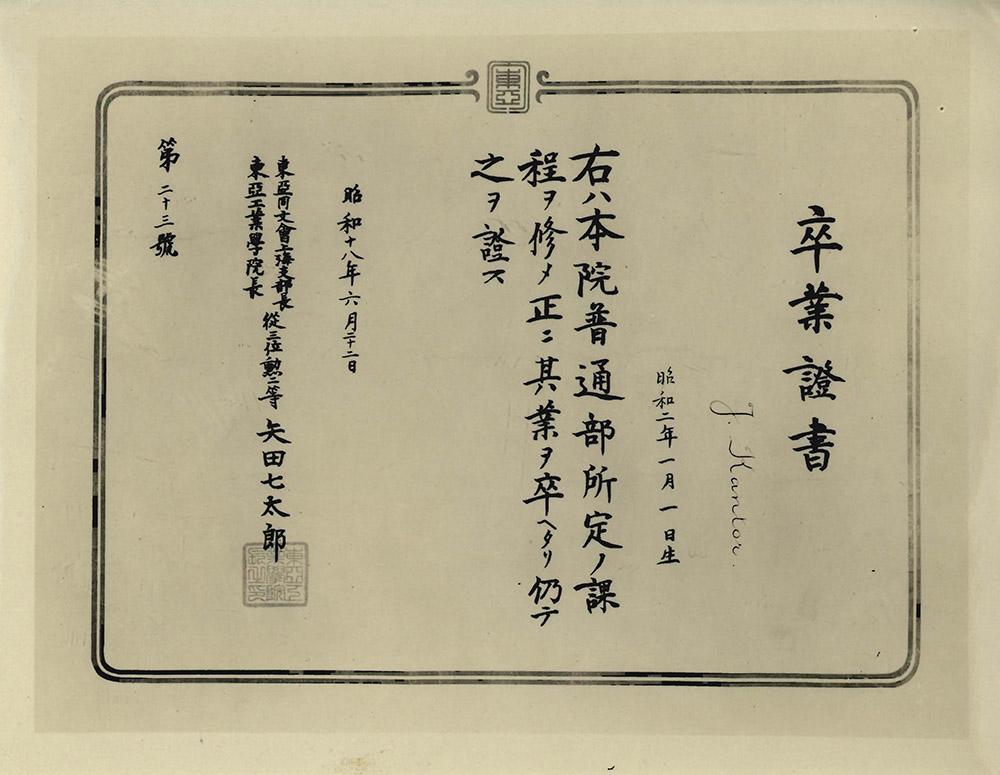 東亞
卒業證書
J. Kantor.
昭和二年一月一日生
右ハ本院普通部所定ノ課
程ヲ修メ正ニ其業ヲ卒ヘタリ仍テ
之ヲ證ス
昭和十八年六月二十二日
東亞同文會上海支部長
東亞工業學院長
從三位勲二等 矢田七太郎
第二十三號